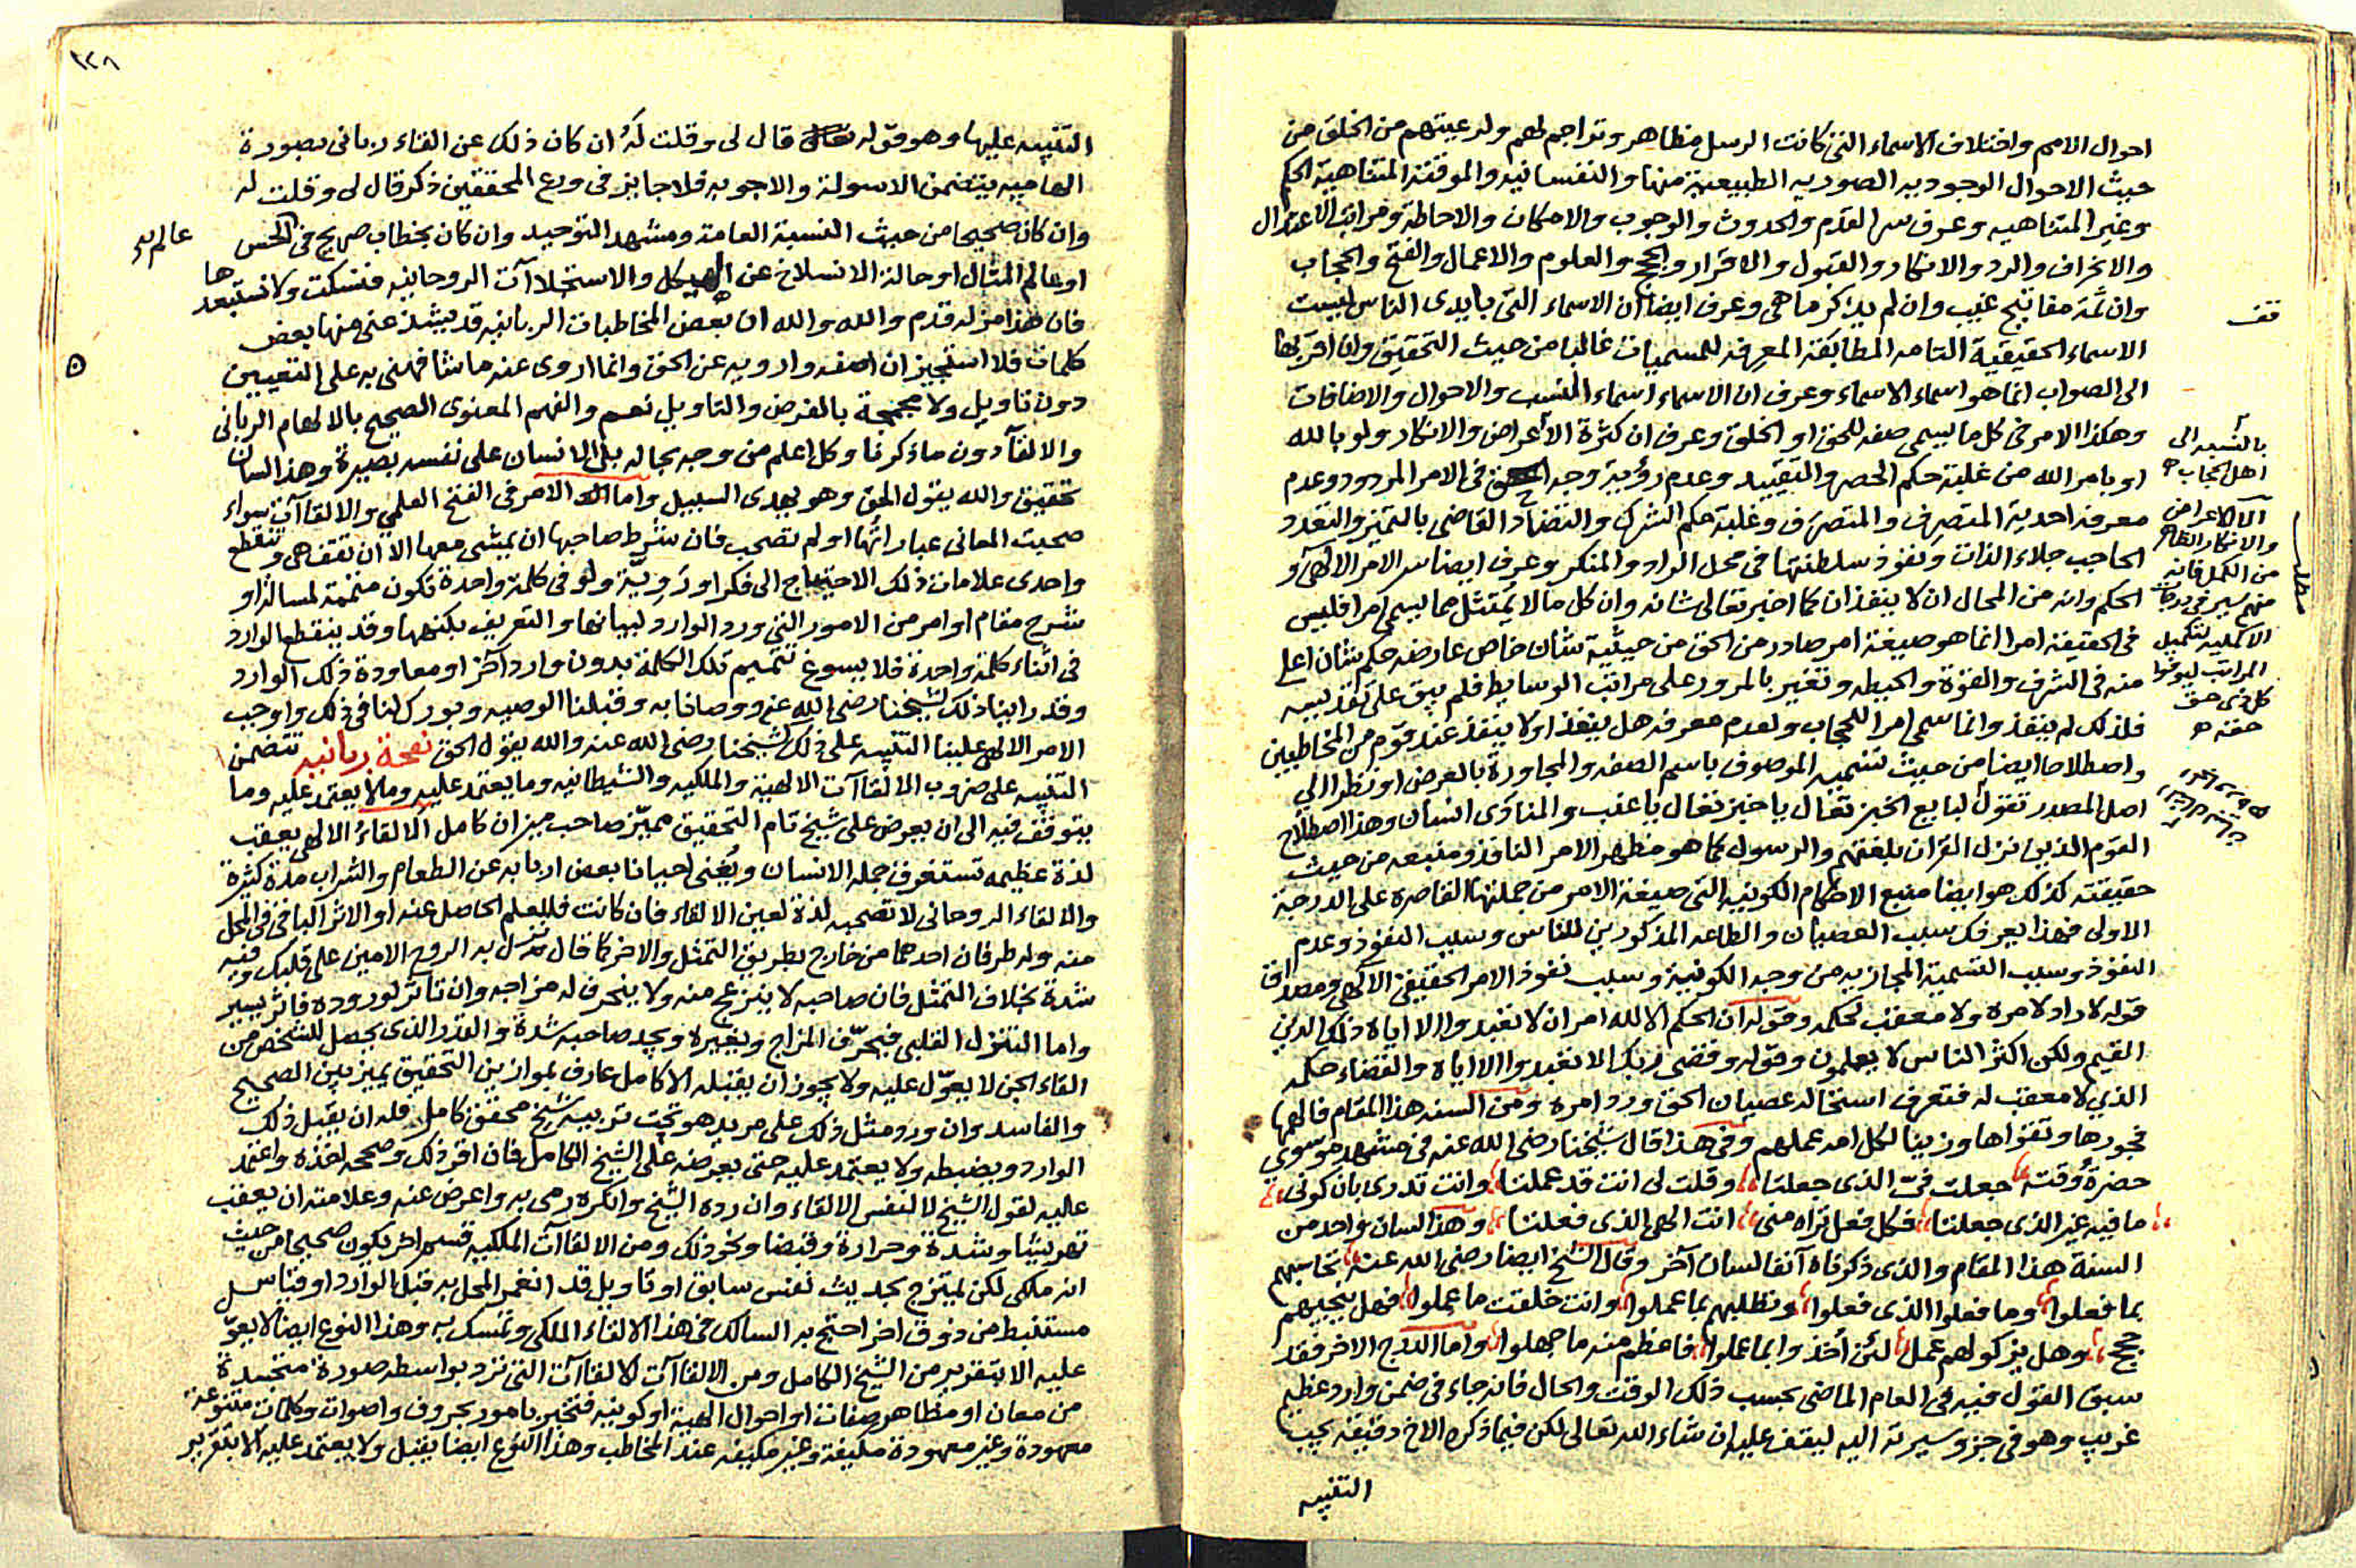 احوال الامم واختلاف الاسماء التى كانت الرسل مظاهر وتراجم لهم ولرعيتهم من الخلق من
حيث الاحوال الوجوديه الصوريه الطبيعية منها والنفسانيه والموقتة المتناهية الحكم
وغير المتناهيه وعرف سر القدم والحدوث والوجوب والامكان والاحاطة ومراتب الاعتدال
والانحراف والرد والانكار والقبول والاقرار والحجج والعلوم والاعمال والفتح والحجاب
وان ثمة مفاتيح غيب وان لم يذكر ما هى وعرف ايضا ان الاسماء التى بايدى الناس ليست
قف
الاسماء الحقيقية التامه المطابقة المعرفه للمسميات غالبا من حيث التحقيق وان اقربها
الى الصواب انما هو اسماء الاسماء وعرف ان الاسماء اسماء النسب والاحوال والاضافات
وهكذا الامر فى كل ما يسمى صفه للحق او الخلق وعرف ان كثرة الأعراض والانكار ولو بالله
او بامر الله من غلبة حكم الحصر والتقييد وعدم رؤية وجه الحق فى الامر المردود وعدم
معرفه احدية المتصرف والمتصرف وغلبة حكم الشرك والتضاد القاضى بالتميز والتعدد
الحاجب جلاء الذات ونفوذ سلطنتها فى محل الراد والمنكر وعرف ايضا سر الامر الالهى و
الحكم وانه من المحال ان لا ينفذان كما اخبر تعالى شانه وان كل ما لا يمتثل مما يسمى امرا فليس
فى الحقيقة امرا انما هو صيغة امر صادر من الحق من حيثية شان خاص عارضه حكم شان اعلى
منه فى الشرف والقوة والحيطه وتغير بالمرور على مراتب الوسايط فلم يبق على تقديسه
فلذلك لم ينفذ وانما سمى امرا للحجاب ولعدم معرفه هل ينفذ او لا ينفذ عند قوم من المخاطبين
واصطلاحا ايضا من حيث تسمية الموصوف باسم الصفه والمجاورة بالعرض او نظرا الى
اصل المصدر تقول لبايع الخبز تعال يا خبز تعال يا عنب والمنادى انسان وهذا اصطلاح
القوم الذين نزل القران بلغتهم والرسول كما هو مظهر الامر النافذ ومنبعه من حيث
حقيقته كذلك هو ايضا منبع الاحكام الكونيه التى صيغة الامر من جملتها القاصره على الدرجة
الاولى فهذا يعرفك سبب العصيان والطاعه المذكورين للناس وسبب النفوذ وعدم
النفوذ وسبب التسمية المجازيه من وجه الكونية وسبب نفوذ الامر الحقيقى الالهى ومصداق
قوله لا راد لامره ولا معقب لحكمه وقوله ان الحكم الا لله امر ان لا تعبدوا الا اياه ذلك الدين
القيم ولكن اكثر الناس لا يعلمون وقوله وقضى ربك الا تعبدوا الا اياه والقضاء حكمه
الذي لا معقب له فتعرف استحاله عصيان الحق ورد امره ومن السنه هذا المقام فالهمها
فجورها وتقواها وزينا لكل امه عملهم وفى هذا قال شيخنا رضى الله عنه فى مشهد موسوي
حضرة وقته جعلت فىّ الذى جعلتا وقلت لى انت قد عملتا وانت تدرى بان كونى
ما فيه غير الذى جعلتا فكل فعل تراه منى انت الهى الذى فعلتا وهذا لسان واحد من
السنة هذا المقام والذى ذكرناه آنفا لسان آخر وقال الشيخ ايضا رضى الله عنه تحاسبهم
بما فعلوا وما فعلوا الذى فعلوا وتطلبهم بما عملوا وانت خلقت ما عملوا فهل ينجيهم
حجج وهل يزكو لهم عمل لئن أخذوا بما عملوا فاعظم منه ما جهلوا واما الدرج الاخر فقد
سبق القول فيه فى العام الماضى بحسب ذلك الوقت والحال فانه جاء فى ضمن وارد عظيم
غريب وهو فى جزو سيرته اليه ليقف عليه ان شاء الله تعالى لكن فيما ذكره الاخ دقيقة يجب
التنبيه
بالنسبه الى
اهل الحجاب
الا الاعراض
والانكار الظاهر
من الكمل فانه
منهم سير فى درجات
الاكمليه لتكميل
المراتب ليوفوا
كل ذى حق
حقه
٢٢٨
التنبيه عليها وهو قوله قال لى وقلت له ان كان ذلك عن القاء ربانى بصورة
الهاميه يتضمن الاسولة والاجوبه فلا جايز فى ورع المحققين ذكر قال لى وقلت له
وان كان صحيحا من حيث النسبة العامة ومشهد التوحيد وان كان بخطاب صريح فى الحس
او عالم المثال او حالة الانسلاخ عن الهيكل والاستجلاآت الروحانيه فنسكت ولا نستبعدها
فان هذا مزله قدم والله والله ان بعض المخاطبات الربانيه قد يشذ عنى منها بعض
كلمات فلا استجيز ان اصفه واروية عن الحق وانما اروى عنه ما شافهنى به على التعيين
دون تاويل ولا مجمجة بالفرض والتاويل نعم والفهم المعنوى الصحيح بالالهام الربانى
والالقآ دون ما ذكرنا وكل اعلم من وجه بحاله بل الانسان على نفسه بصيرة وهذا لسان
تحقيق والله يقول الحق وهو يهدى السبيل واما الامر فى الفتح العلمي والالقاآت سواء
صحبت المعانى عباراتها او لم تصحب فان شرط صاحبها ان يمشى معها الا ان تقف هى وتنقطع
واحدى علامات ذلك الاحتياج الى فكر او روية ولو فى كلمة واحدة تكون متممة لمسالة او
شرح مقام او امر من الامور التى ورد الوارد لبيانها والتعريف بكنهها وقد ينقطع الوارد
فى اثناء كلمة واحدة فلا يسوغ تتميم تلك الكلمة بدون وارد آخر او معاودة ذلك الوارد
وقد راينا ذلك لشيخنا رضى الله عنه ووصانا به وقبلنا الوصيه وبورك لنا فى ذلك واوجب
الامر الالهى علينا التنبيه على ذلك لشيخنا رضى الله عنه والله يقول الحق نفحة ربانيه تتضمن
التنبيه على ضروب الالقاآت الالهية والملكيه والشيطانيه وما يعتمد عليه وما لا يعتمد عليه وما
يتوقف فيه الى ان يعرض على شيخ تام التحقيق مميّز صاحب ميزان كامل الالقاء الالهى يعقب
لذة عظيمه تستغرق جمله الانسان ويُغنى احيانا بعض اربابه عن الطعام والشراب مدة كثيرة
والالقاء الروحانى لا تصحبه لذة لعين الالقاء فان كانت فللعلم الحاصل عنه او الاثر الباقى فى المحل
منه وله طرفان احدهما من خارج بطريق التمثل والاخر كما قال نزل به الروح الامين على قلبك وفيه
شدة بخلاف التمثل فان صاحبه لا ينزعج منه ولا ينحرف له مزاجه وان تاثر لوروده فاثر يسير
واما التنزل القلبى فيحرّف المزاج ويغيره ويجد صاحبه شدة والقدر الذى يحصل للشخص من
القاء الجن لا يعوّل عليه ولا يجوز ان يقبله الا كامل عارف بموازين التحقيق يميز بين الصحيح
والفاسد وان ورد مثل ذلك على مريد هو تحت تربية شيخ محقق كامل فله ان يقبل ذلك
الوارد ويضبطه ولا يعتمد عليه حتى يعرضه على الشيخ الكامل فان اقر ذلك وصححه اخذه واعتمد
عليه لقول الشيخ لا لنفس الالقاء وان رده الشيخ وانكره رمى به واعرض عنه وعلامته ان يعقب
تهويشا وشدة وحرارة وقبضا ونحو ذلك ومن الالقاآت الملكيه قسم اخر يكون صحيحا من حيث
انه ملكى لكن يمتزج بحديث نفس سابق او تاويل قد انغمر المحل به قبل الوارد او قياس
مستنبط من ذوق اخر احتج به السالك فى هذا الالقاء الملكى وتمسك به وهذا النوع ايضا لا يعوّل
عليه الا بتقرير من الشيخ الكامل ومن الالقاآت الالقاآت التى ترد بواسطه صورة متجسدة
من معان او مظاهر صفات او احوال الهية او كونيه فتخبر بامور بحروف واصوات وكلمات متنوعة
معهودة وغير معهودة مكيفة وغير مكيفه عند المخاطب وهذا النوع ايضا يقبل ولا يعتمد عليه الا بتقرير